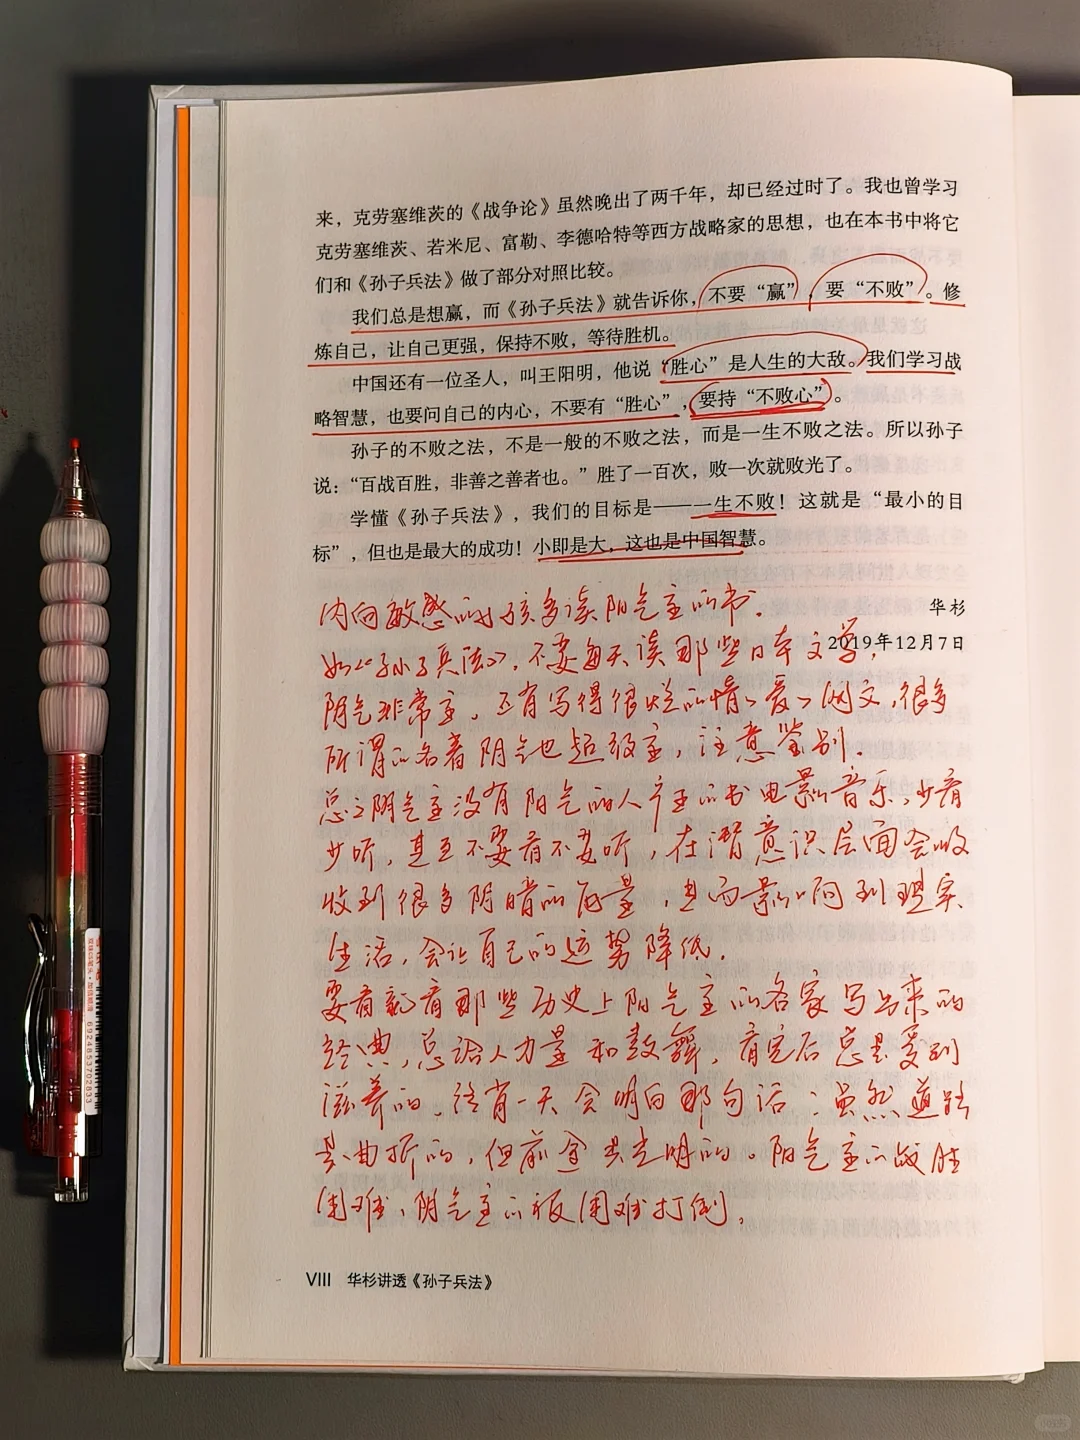 来，克劳塞维茨的《战争论》虽然晚出了两千年，却已经过时了。我也曾学习
克劳塞维茨、若米尼、富勒、李德哈特等西方战略家的思想，也在本书中将它
们和《孙子兵法》做了部分对照比较。
我们总是想赢，而《孙子兵法》就告诉你，不要“赢”，要“不败”。修
炼自己，让自己更强，保持不败，等待胜机。
中国还有一位圣人，叫王阳明，他说“胜心”是人生的大敌。我们学习战
略智慧，也要问自己的内心，不要有“胜心”，要持“不败心”。
孙子的不败之法，不是一般的不败之法，而是一生不败之法。所以孙子
说：“百战百胜，非善之善者也。”胜了一百次，败一次就败光了。
学懂《孙子兵法》，我们的目标是——一生不败！这就是“最小的目
标”，但也是最大的成功！小即是大，这也是中国智慧。
华杉
2019年12月7日
内向敏感的小孩多读阳气重的书。
如《孙子兵法》，不要每天读那些日本文学，
阴气非常重，还有写得很烂的情情爱爱网文，很多
所谓的名著阴气也超级重，注意鉴别。
总之阴气重没有阳气的人产生的书电影音乐，少看
少听，甚至不要看不要听，在潜意识层面会吸
收到很多阴暗的能量，进而影响到现实
生活，会让自己的运势降低。
要看就看那些历史上阳气重的名家写出来的
经典，总给人力量和鼓舞，看完后总是受到
滋养的。终有一天会明白那句话：虽然道路
是曲折的，但前途是光明的。阳气重的战胜
困难，阴气重的被困难打倒。
VIII 华杉讲透《孙子兵法》
6924685702833